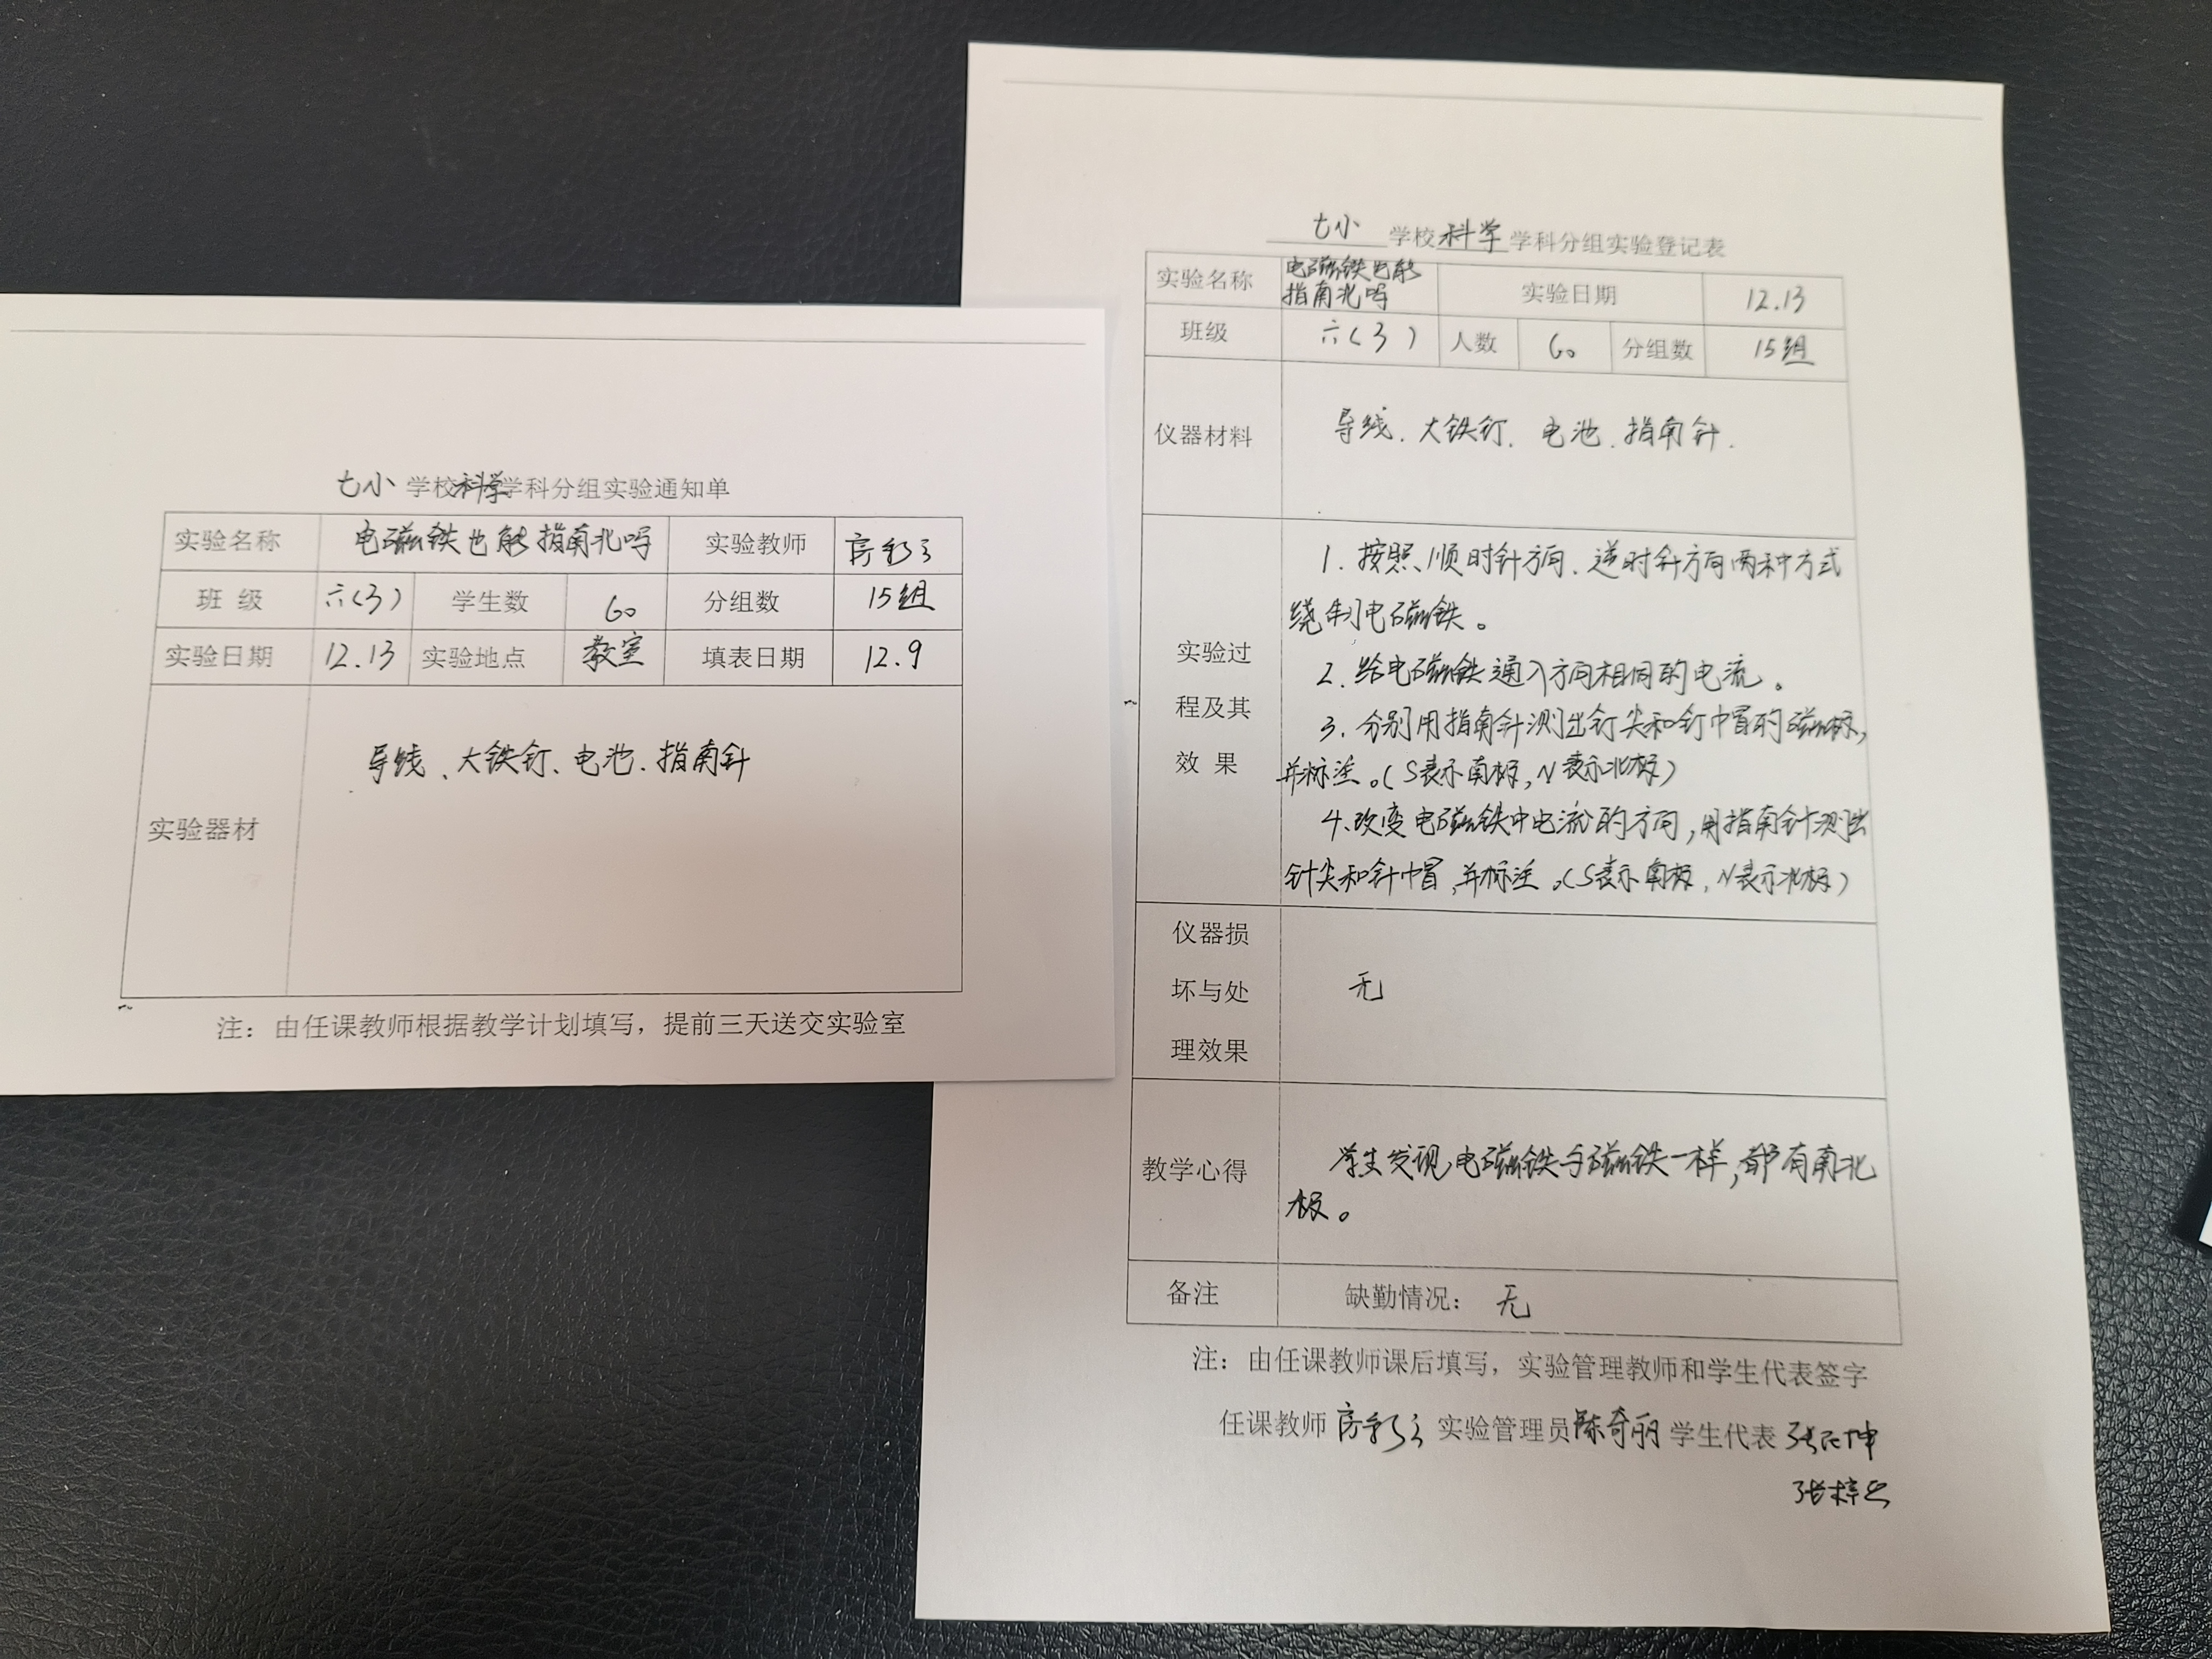 七小 学校科学学科分组实验通知单
实验名称 电磁铁也能指南北吗 实验教师
班 级 六(3) 学生数 60 分组数 15组
实验日期 12.13 实验地点 教室 填表日期 12.9
实验器材 导线、大铁钉、电池、指南针
注：由任课教师根据教学计划填写，提前三天送交实验室
七小 学校科学学科分组实验登记表
实验名称 电磁铁也能 实验日期 12.13
指南北吗
班级 六(3) 人数 60 分组数 15组
仪器材料 导线、大铁钉、电池、指南针.
1. 按照顺时针方向、逆时针方向两种方式
绕制电磁铁。
实验过
2. 给电磁铁通入方向相同的电流。
程及其
3. 分别用指南针测出钉尖和钉帽的磁极,
效 果
并标注。(S表示南极, N表示北极)
4.改变电磁铁中电流的方向,用指南针测出
针尖和针帽,并标注。(S表示南极, N表示北极)
仪器损
坏与处 无
理效果
教学心得 学生发现电磁铁与磁铁一样,都有南北
极。
备注 缺勤情况： 无
注：由任课教师课后填写，实验管理教师和学生代表签字
任课教师 实验管理员陈奇丽 学生代表